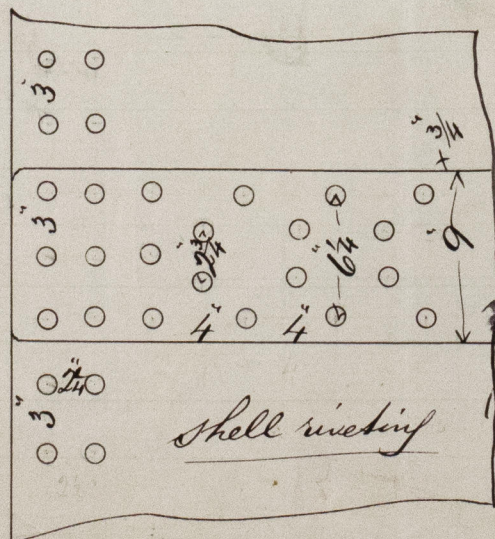 3"
+ 3/4"
3"
2 3/4"
6 1/4"
9"
4"
4"
2 1/4"
3"
shell riveting